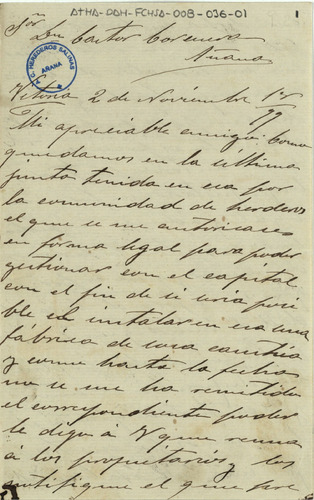 ATHA-DAH-FCHSA-008-036-01
1
Sor
Dn Castor
Añana
A.C. HEREDEROS SALINAS
AÑANA
Vitoria 2 de Noviembre 1899
Mi apreciable amigo: Como
quedamos en la última
junta tenida en esa por
la comunidad de herederos
el que se me autorizase
en forma legal para poder
gestionar con el capital
con el fin de si seria posi
ble el instalar en esa una
fábrica de sosa caustica
y como hasta la fecha
no se me ha remitido
el correspondiente poder
le digo á V que reuna
á los propietarios y les
notifique el que por